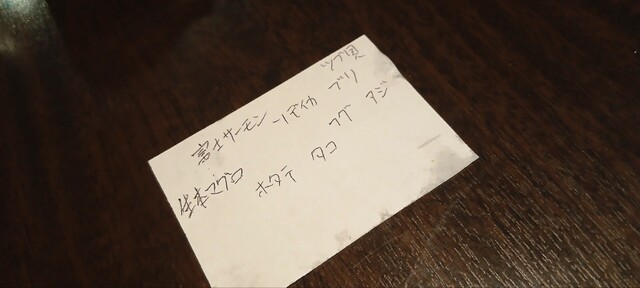 富士サーモン ソデイカ ブリ ツブ貝
生本マグロ ホタテ タコ フグ アジ